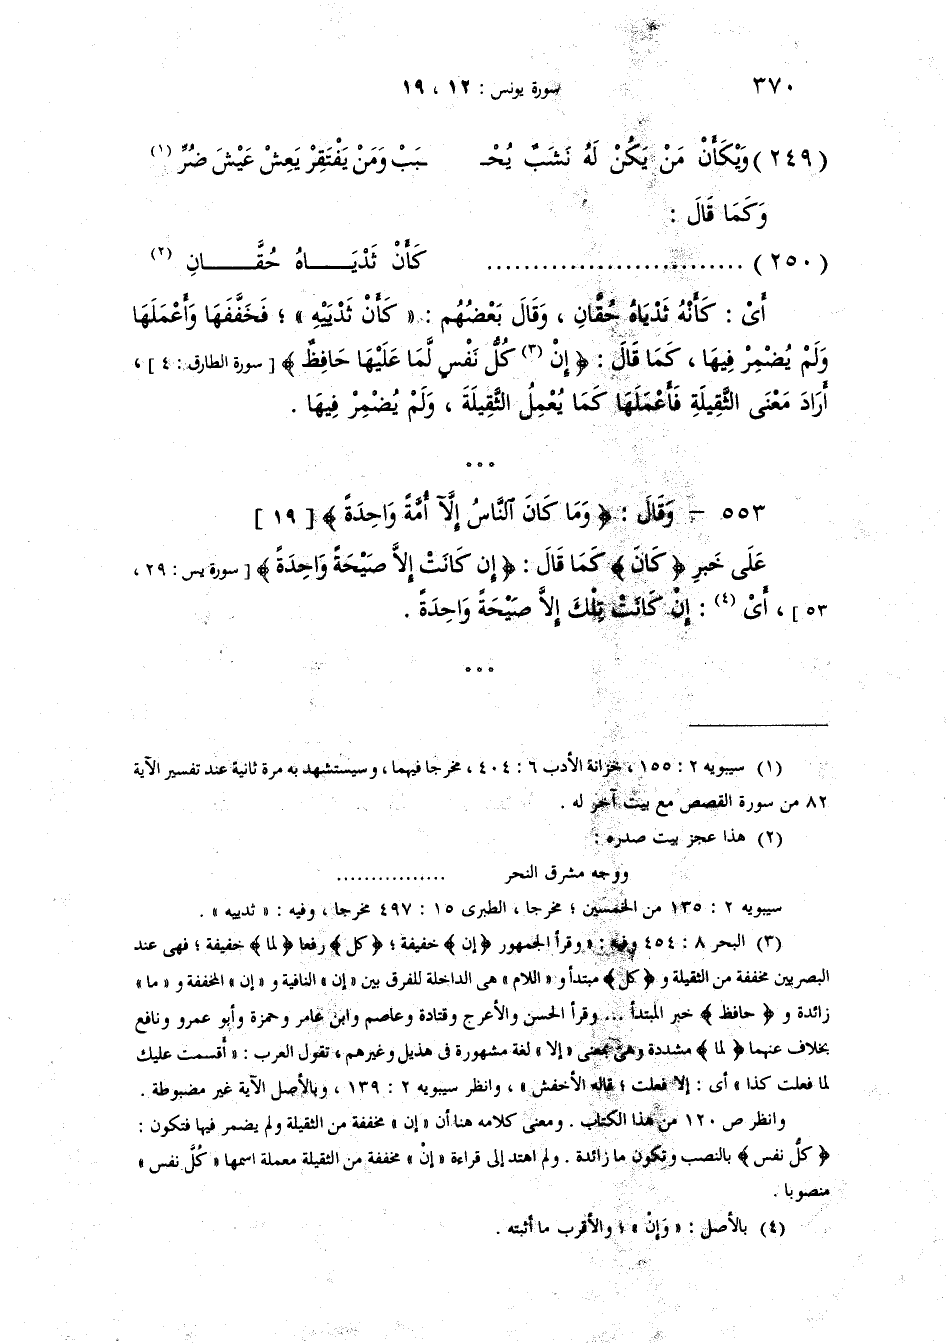 ٣٧٠
سورة يونس : ١٢ ، ١٩
(٢٤٩) وَيْكَأَنْ مَنْ يَكُنْ لَهُ نَشَبٌ يُحْـ ـبَبْ وَمَنْ يَفْتَقِرْ يَعِشْ عَيْشَ ضُرِّ (١)
وَكَمَا قَالَ :
(٢٥٠) ............................ كَأَنْ ثَدْيَــاهُ حُقَّــانِ (٢)
أَىْ : كَأَنْهُ ثَدْيَاهُ حُقَّانِ ، وَقَالَ بَعْضُهُم : « كَأَنْ ثَدْيَيْهِ » ؛ فَخَفَّفَهَا وَأَعْمَلَهَا
وَلَمْ يُضْمِرْ فِيهَا ، كَمَا قَالَ : ﴿ إِنْ (٣) كُلَّ نَفْسٍ لَّمَا عَلَيْهَا حَافِظٌ ﴾ [ سورة الطارق : ٤ ] ،
أَرَادَ مَعْنَى الثَّقِيلَةِ فَأَعْمَلَهَا كَمَا يُعْمِلُ الثَّقِيلَةَ ، وَلَمْ يُضْمِرْ فِيهَا .
° ° °
٥٥٣ - وَقَالَ : ﴿ وَمَا كَانَ ٱلنَّاسُ إِلَّآ أُمَّةً وَاحِدَةً ﴾ [ ١٩ ]
عَلَى خَبرِ ﴿ كَانَ ﴾ كَمَا قَالَ : ﴿ إِن كَانَتْ إِلاَّ صَيْحَةً وَاحِدَةً ﴾ [ سورة يس : ٢٩ ،
٥٣ ] ، أَىْ (٤) : إِنْ كَانَتْ تِلْكَ إِلاَّ صَيْحَةً وَاحِدَةً .
° ° °
(١) سيبويه ٢ : ١٥٥ ، خزانة الأدب ٦ : ٤٠٤ ، مخرجا فيهما ، وسيستشهد به مرة ثانية عند تفسير الآية
٨٢ من سورة القصص مع بيت آخر له .
(٢) هذا عجز بيت صدره :
ووجه مشرق النحر ................
سيبويه ٢ : ١٣٥ من الخمسين ؛ مخرجا ، الطبرى ١٥ : ٤٩٧ مخرجا ، وفيه : « ثدييه » .
(٣) البحر ٨ : ٤٥٤ وفيه : « وقرأ الجمهور ﴿ إن ﴾ خفيفة ؛ ﴿ كل ﴾ رفعا ﴿ لما ﴾ خفيفة ؛ فهى عند
البصريين مخففة من الثقيلة و ﴿ كل ﴾ مبتدأ و « اللام » هى الداخلة للفرق بين « إن » النافية و « إن » المخففة و « ما »
زائدة و ﴿ حافظ ﴾ خبر المبتدأ ... وقرأ الحسن والأعرج وقتادة وعاصم وابن عامر وحمزة وأبو عمرو ونافع
بخلاف عنهما ﴿ لما ﴾ مشددة وهى بمعنى « إلا » لغة مشهورة فى هذيل وغيرهم ، تقول العرب : « أقسمت عليك
لما فعلت كذا » أى : إلا فعلت ؛ قاله الأخفش » ، وانظر سيبويه ٢ : ١٣٩ ، وبالأصل الآية غير مضبوطة .
وانظر ص ١٢٠ من هذا الكتاب . ومعنى كلامه هنا أن « إن » مخففة من الثقيلة ولم يضمر فيها فتكون :
﴿ كلَّ نفس ﴾ بالنصب وتكون ما زائدة . ولم اهتد إلى قراءة « إنْ » مخففة من الثقيلة معملة اسمها « كُلَّ نفس »
منصوبا .
(٤) بالأصل : « وَإِنْ » ؛ والأقرب ما أثبته .